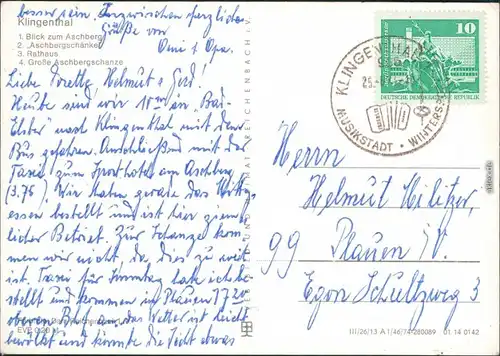 besser sein. Inzwischen herzliche
Grüße von
Omi + Opa.
Klingenthal
1. Blick zum Aschberg
2. „Aschbergschänke"
3. Rathaus
4. Große Aschbergschanze
Liebe Dorothea, Helmut + Gerd!
Heute sind wir 10 von Bad-
Elster nach Klingenthal mit dem
Bus gefahren. Anschließend mit der
Taxe zum Sporthotel am Aschberg
(3.75). Wir haben gerade das Mittag-
essen bestellt und ist hier ziem-
licher Betrieb. Zur Schanze kom-
men wir nicht, da dies zu weit
ist. Taxi für Sonntag habe ich be-
stellt und kommen in Plauen 17 20
oberen Bhf an. das Wetter ist leicht
bewölkt und könnte die Sicht etwas
10
DEUTSCHE DEMOKRATISCHE REPUBLIK
KLINGENTHAL
MUSIKSTADT • WINTERSP
Herrn
Helmut Hilitzer,
99 Plauen i/V.
Egon Schultzweg 3
III/26/13 A 1/(46)74-280089 01 14 0142